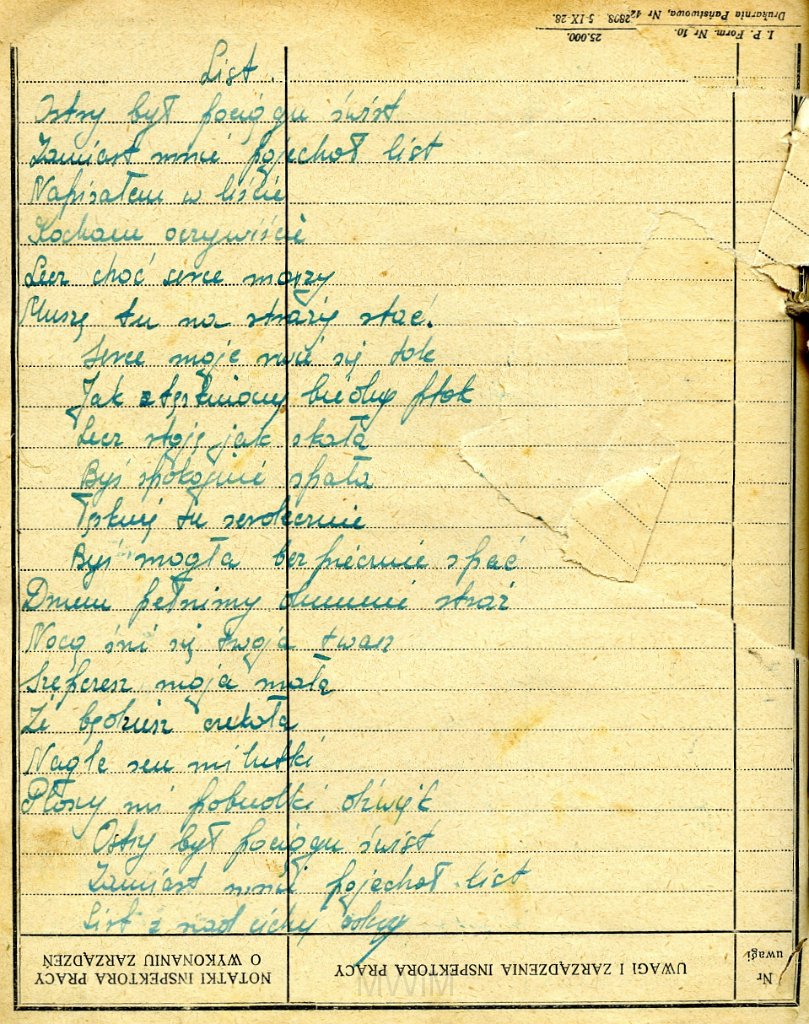 I. P. Form. Nr 10. 25.000.
Drukarnia Państwowa, Nr 42 2898. 5-IX-28.
List.
Ostry był pociągu świst
Zamiast mnie pojechał list
Napisałem w liście
Kocham oczywiście
Lecz choć serce marzy
Muszę tu na straży stać.
Serce moje rwie się tak
Jak stęskniony biedny ptak
Lecz stoję jak skała
Byś spokojnie spała
Tęsknię tu serdecznie
Byś mogła bezpiecznie spać
Dniem pełnimy dumnie straż
Nocą śni się twoja twarz
Szepczesz moja mała
Że będziesz czekała
Nagle sen milutki
Płoszy mi pobudki dźwięk
Ostry był pociągu świst
Zamiast mnie pojechał list
List z nad cichej
NOTATKI INSPEKTORA PRACY O WYKONANIU ZARZĄDZEŃ
UWAGI I ZARZĄDZENIA INSPEKTORA PRACY
Nr uwagi
MWIM